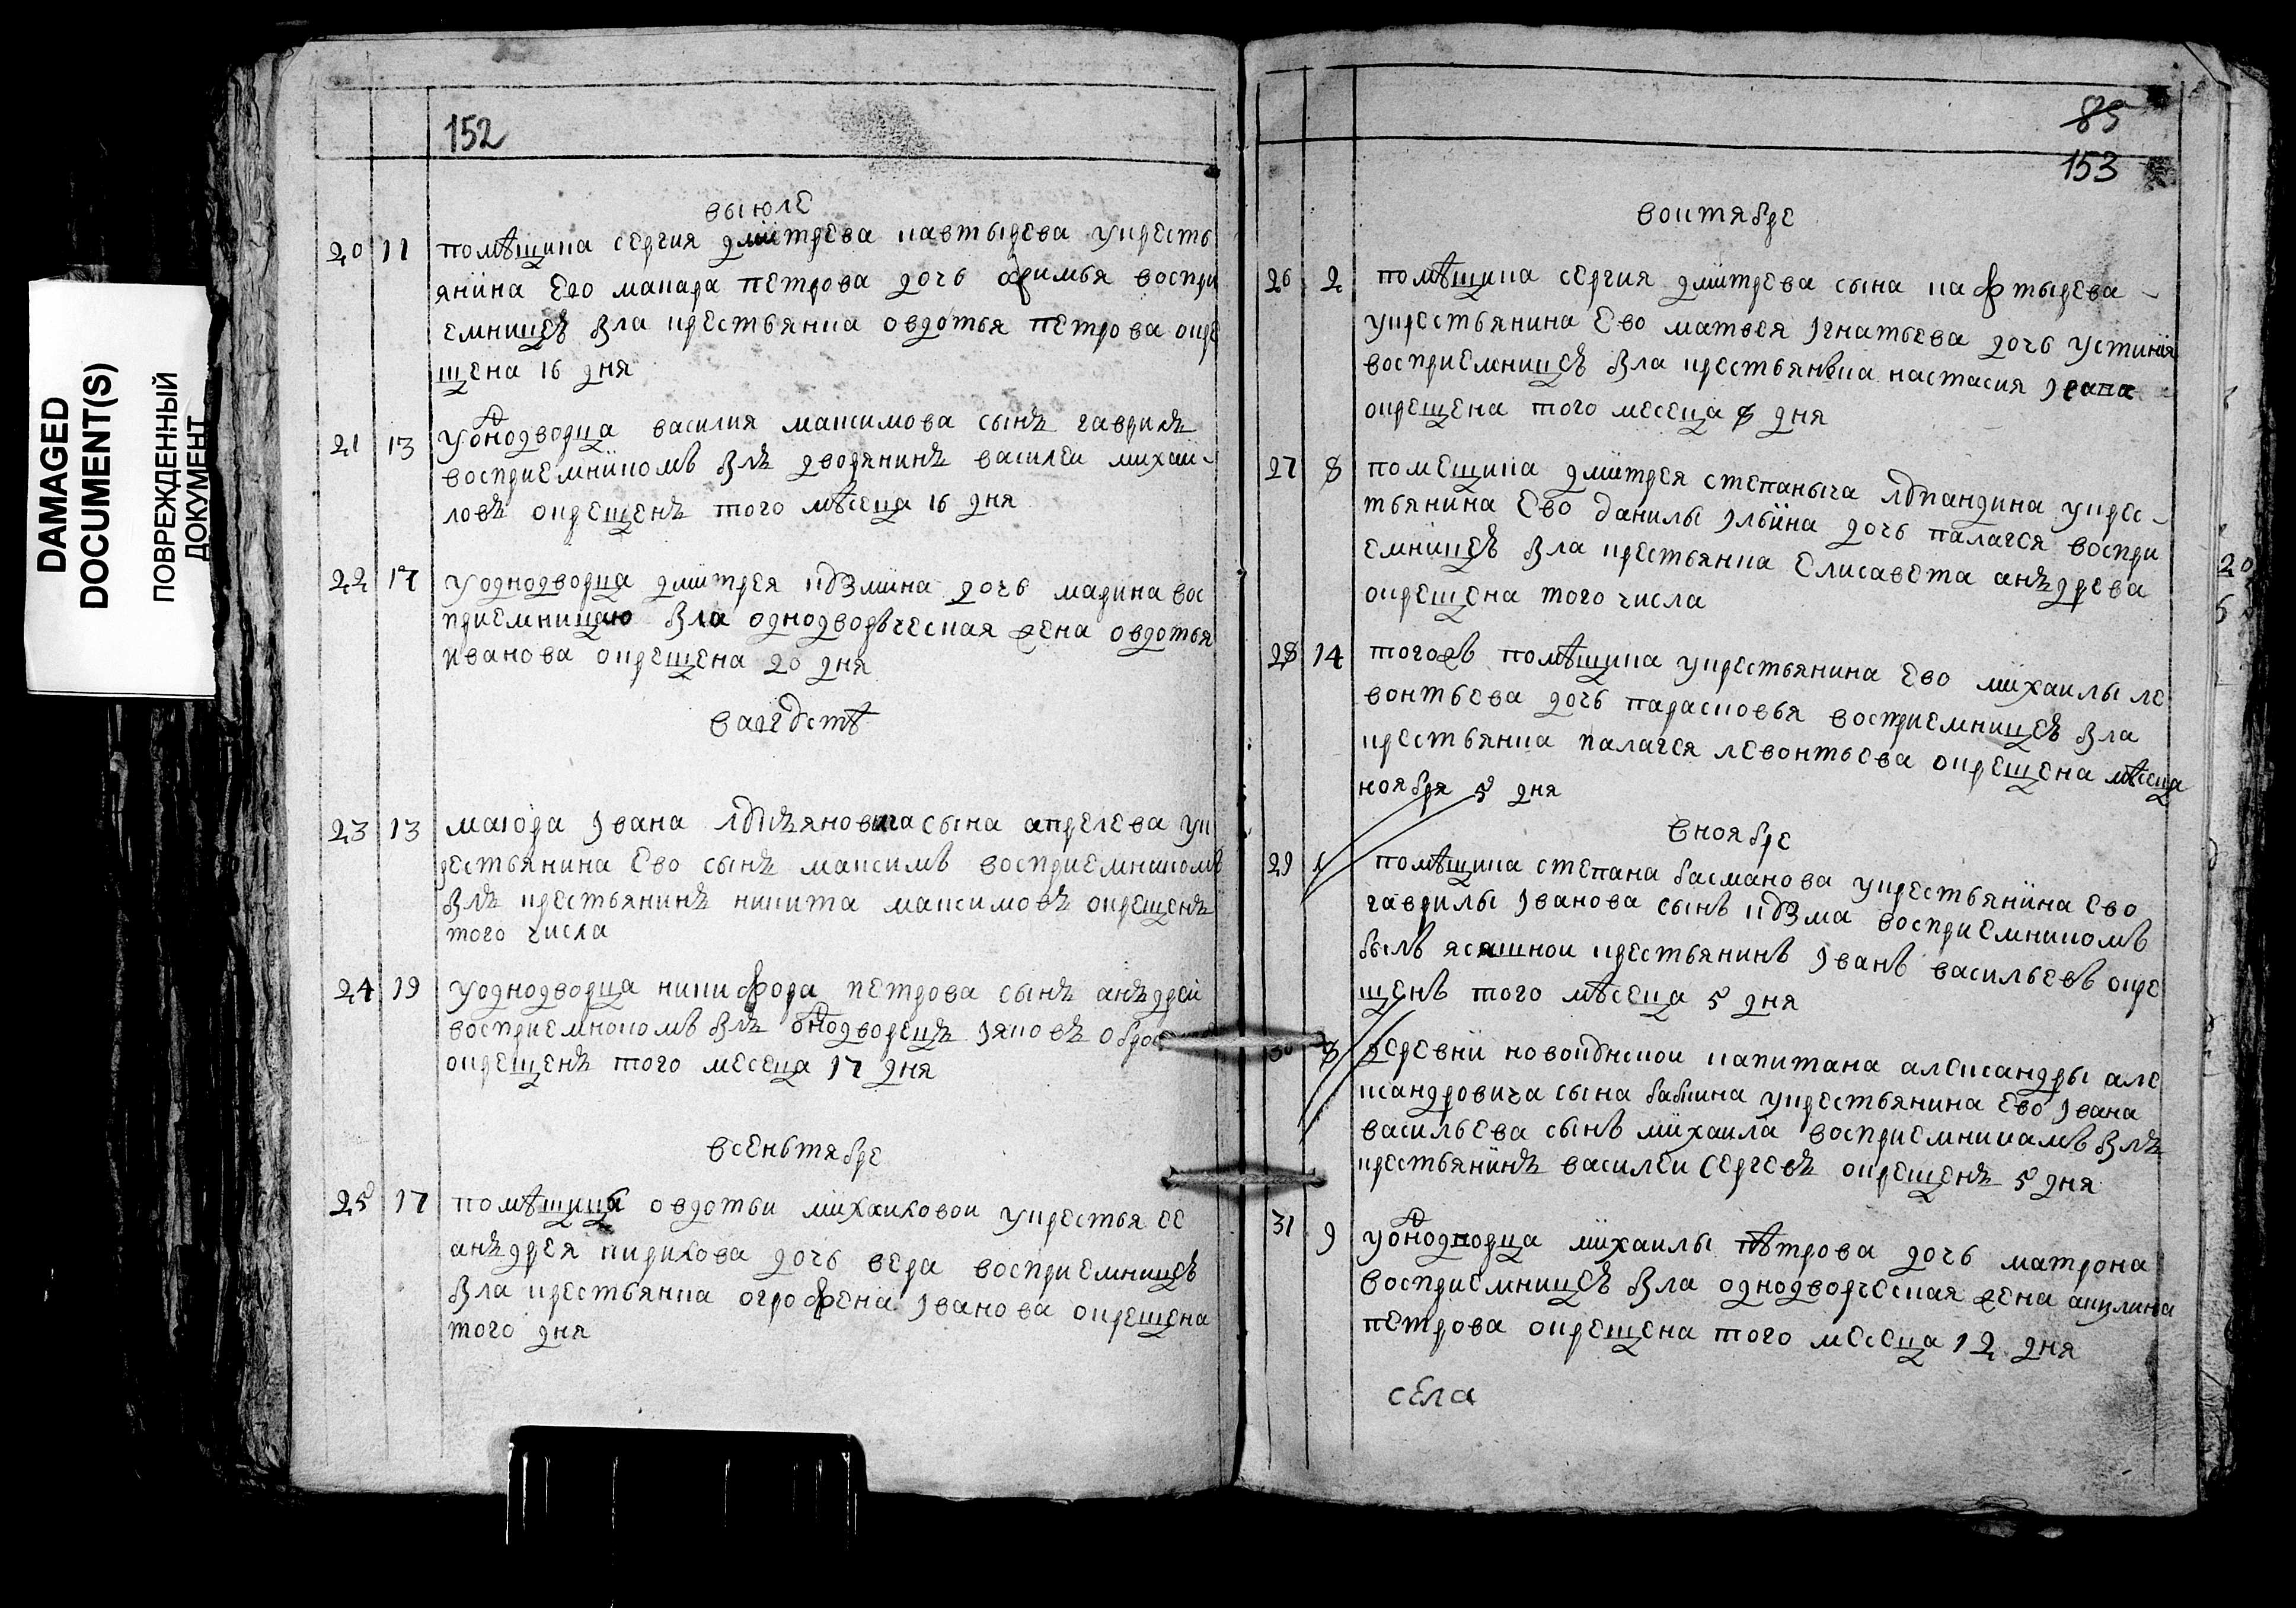 DAMAGED
DOCUMENT(S)
ПОВРЕЖДЕННЫЙ
ДОКУМЕНТ
152
выюле
20 11 помѣщика сергия дмитрева кавтырева укресть
янина его макара петрова дочь офимья воспри
емницеѣ была крестьянка овдотья петрова окре
щена 16 дня
21 13 уоднодворца василия максимова сынъ гаврилъ
восприемникомъ былъ дворянинъ василеи михаи-
ловъ окрещенъ того мѣсеца 16 дня
22 17 уоднодворца дмитрея кузмина дочь марина вос
приемницаю была однодворческая жена овдотья
иванова окрещена 20 дня
вагустѣ
23 13 маиора Iвана лукъяновича сына апрелева ук
рестьянина ево сынъ максимъ восприемникомъ
былъ крестьянинъ никита максимовъ окрещенъ
того числа
24 19 уоднодворца никифора петрова сынъ анъдреи
восприемноком ъ былъ однодворецъ Iяковъ
окрещенъ того месеца 17 дня
всеньтябре
25 17 помѣщицы овдотьи михаиловои укрестья ее
анъдрея кирилова дочь вера восприемницеѣ
была крестьянка огрофена Iванова окрещена
того дня
85
153
воктябре
26 2 помѣщика сергия дмитрева сына кафтырева
укрестьянина ево матвея Iгнатьева дочь устиния
восприемницеѣ была крестьянка настасия
окрещена того месеца 8 дня
27 8 помещика дмитрея степаныча лупандина укрес-
тьянина ево данилы Iльина дочь палагея воспри
емницеѣ была крестьянка елисавета анъдрева
окрещена того числа
28 14 тогожъ помѣщика укрестьянина ево михаилы ле
вонтьева дочь парасковья восприемницеѣ была
крестьянка палагея левонтьева окрещена мѣсеца
ноября 5 дня
вноябре
29 1 помѣщика степана басманова укрестьянина ево
гаврилы Iванова сынъ кузма восприемникомъ
былъ ясашнои крестьянинъ Iванъ васильевъ окре
щенъ того мѣсеца 5 дня
30 3 деревни новои капитана александры але
ксандровича сына бабкина укрестьянина ево Iвана
васильева сынъ михаила восприемникамъ былъ
крестьянинъ василеи сергевъ окрещенъ 5 дня
31 9 уоднодворца михаилы пѣтрова дочь матрона
восприемницеѣ была однодворческая жена акулина
петрова окрещена того месеца 12 дня
села